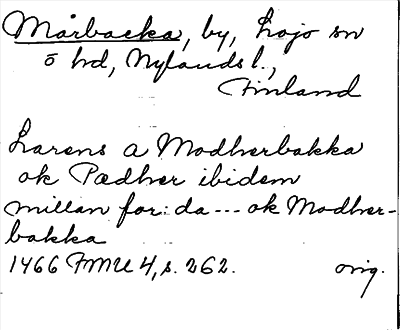 Mårbacka, by, Lojo sn
ö hd, Nylands l.,
Finland
Larens a Modherbakka
ok Pædher ibidem
millan for: da --- ok Modher-
bakka
1466 FMU 4, s. 262. orig.